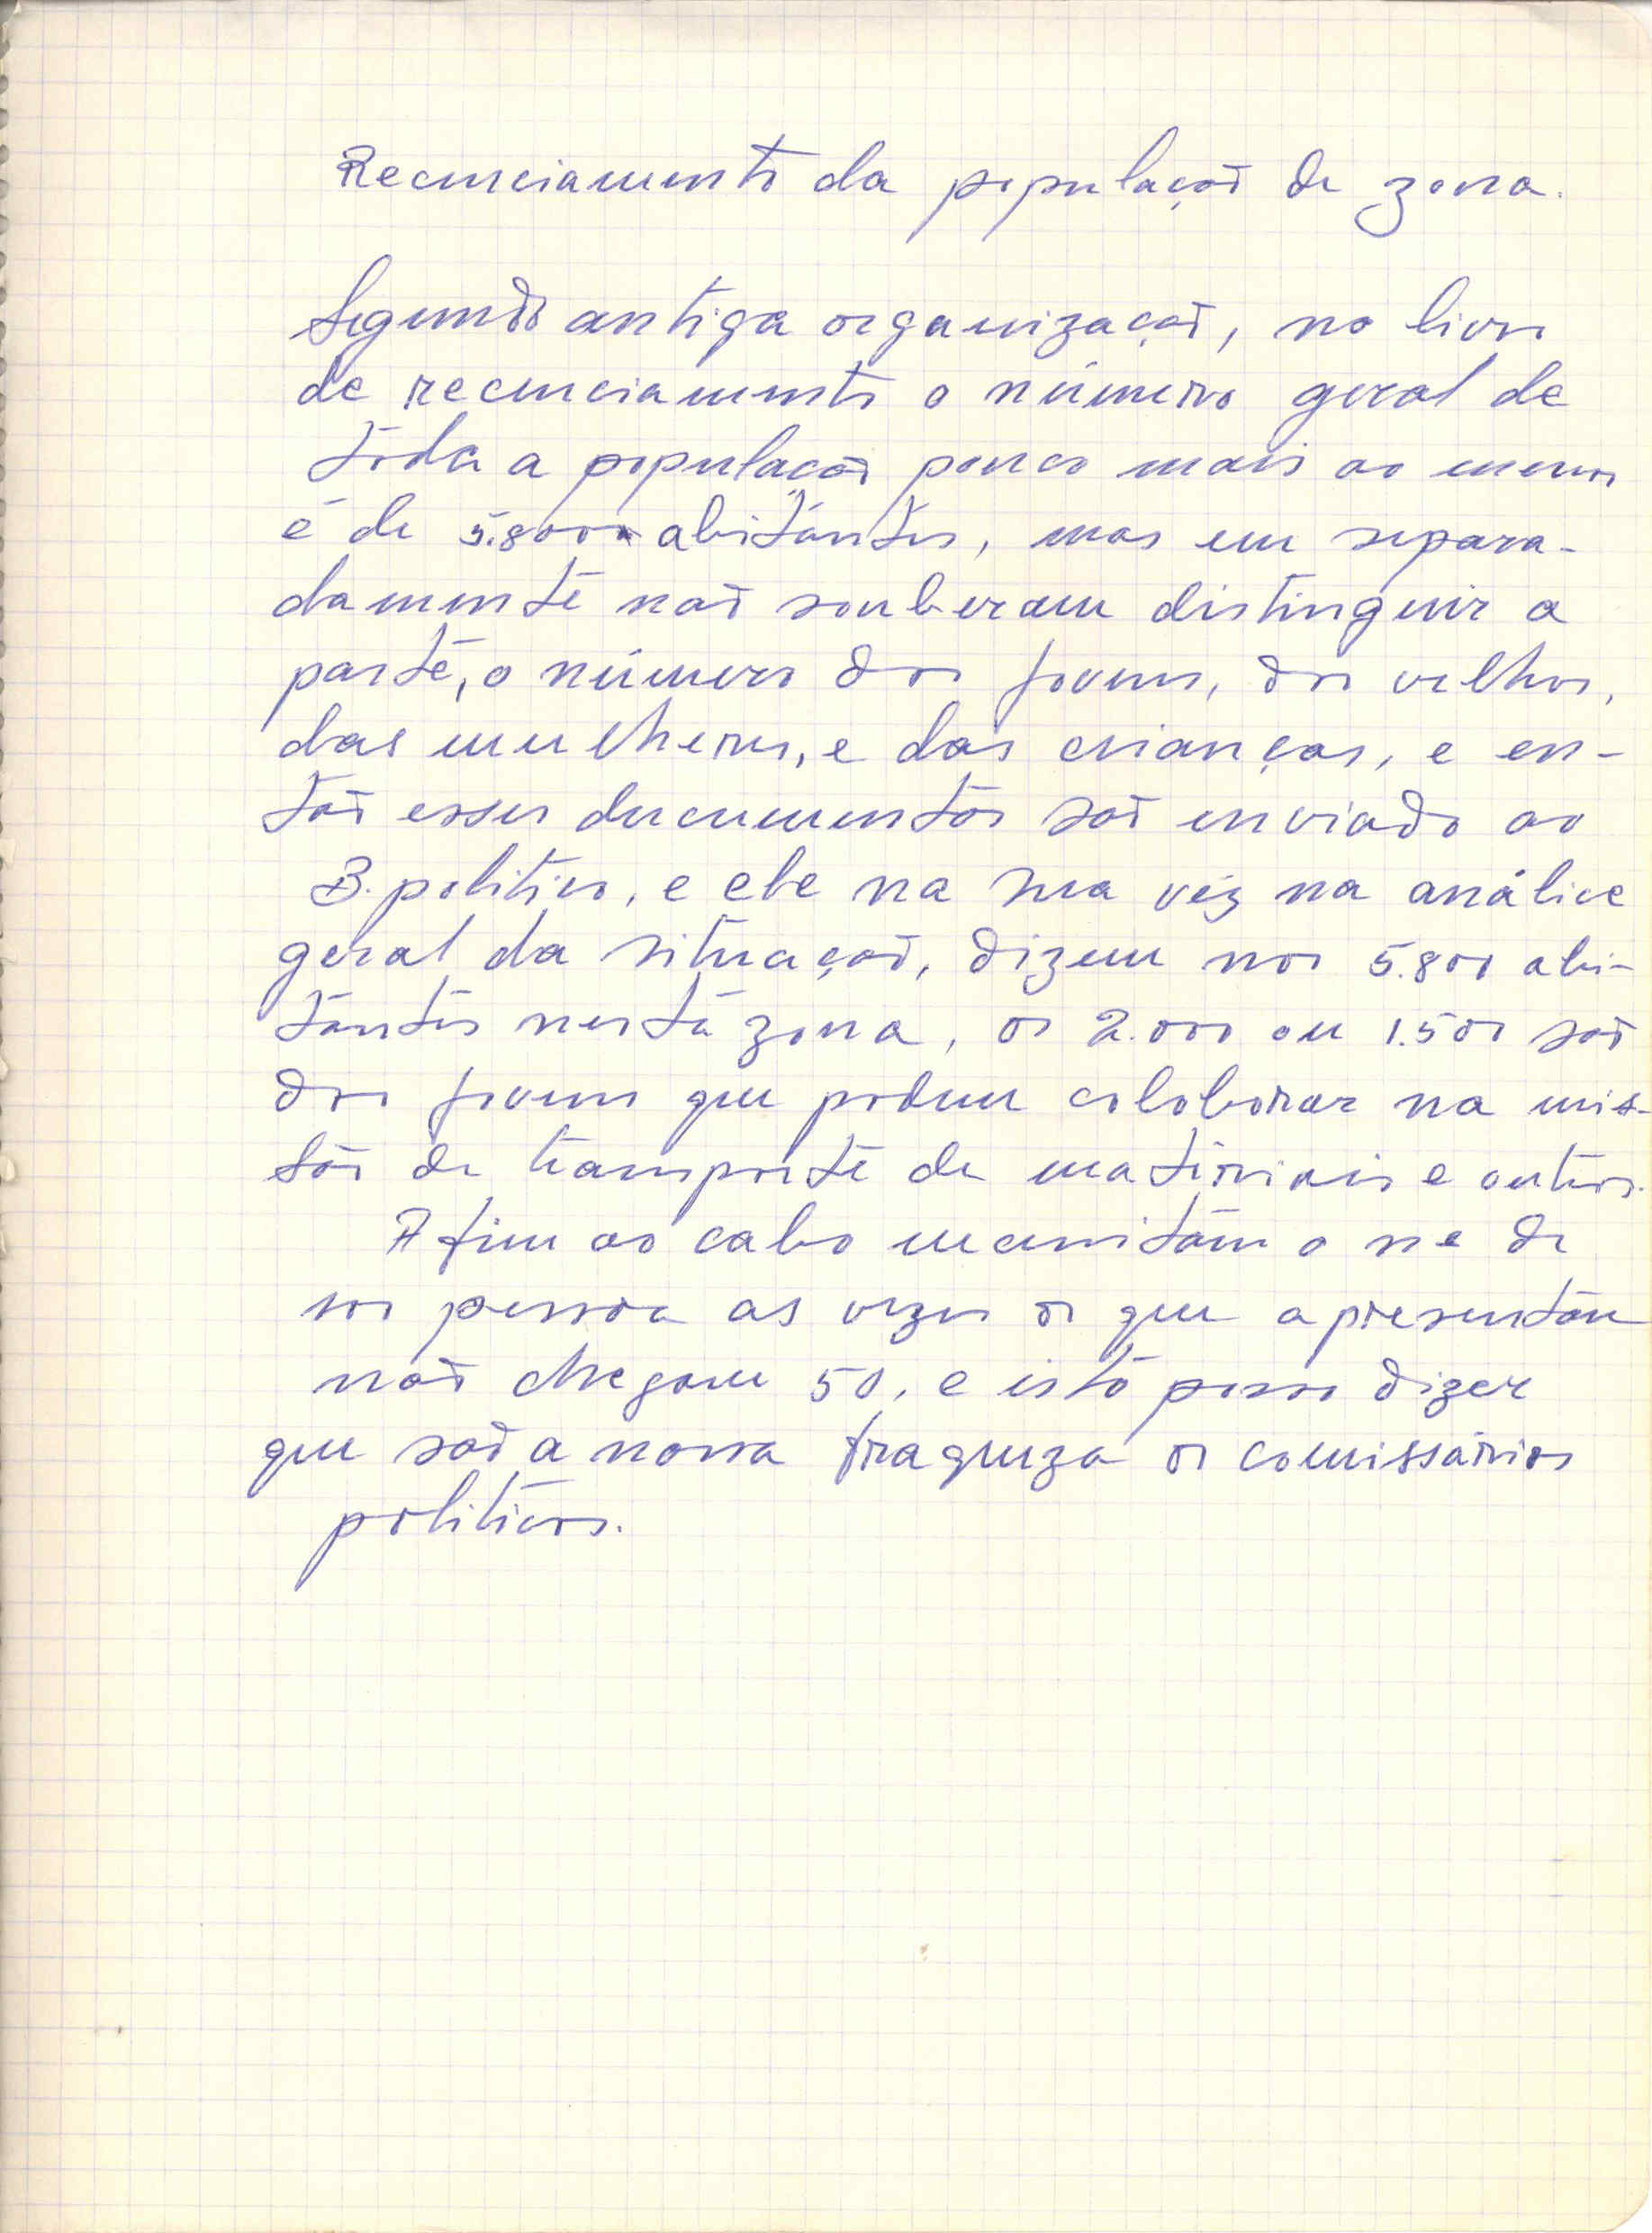 Recenciamento da população de zona.
Segundo antiga organização, no livro
de recenciamento o número geral de
toda a população pouco mais ao menos
é de 5.800 abitantes, mas em separa-
damente não souberam distinguir a
parte, o número dos jovens, dos velhos,
das mulheres, e das crianças, e en-
tão esses documentos são enviado ao
B. politico, e ele na sua véz na análice
geral da situação, dizem nos 5.800 abi-
tantes nesta zona, os 2.000 ou 1.500 são
dos jovens que podem coloborar na mis-
são de transporte de matériais e outros.
A fim ao cabo o de
pessoa as vezes os que apresentam
não chegam 50, e isto posso dizer
que são a nossa fraqueza os comissários
politicos.